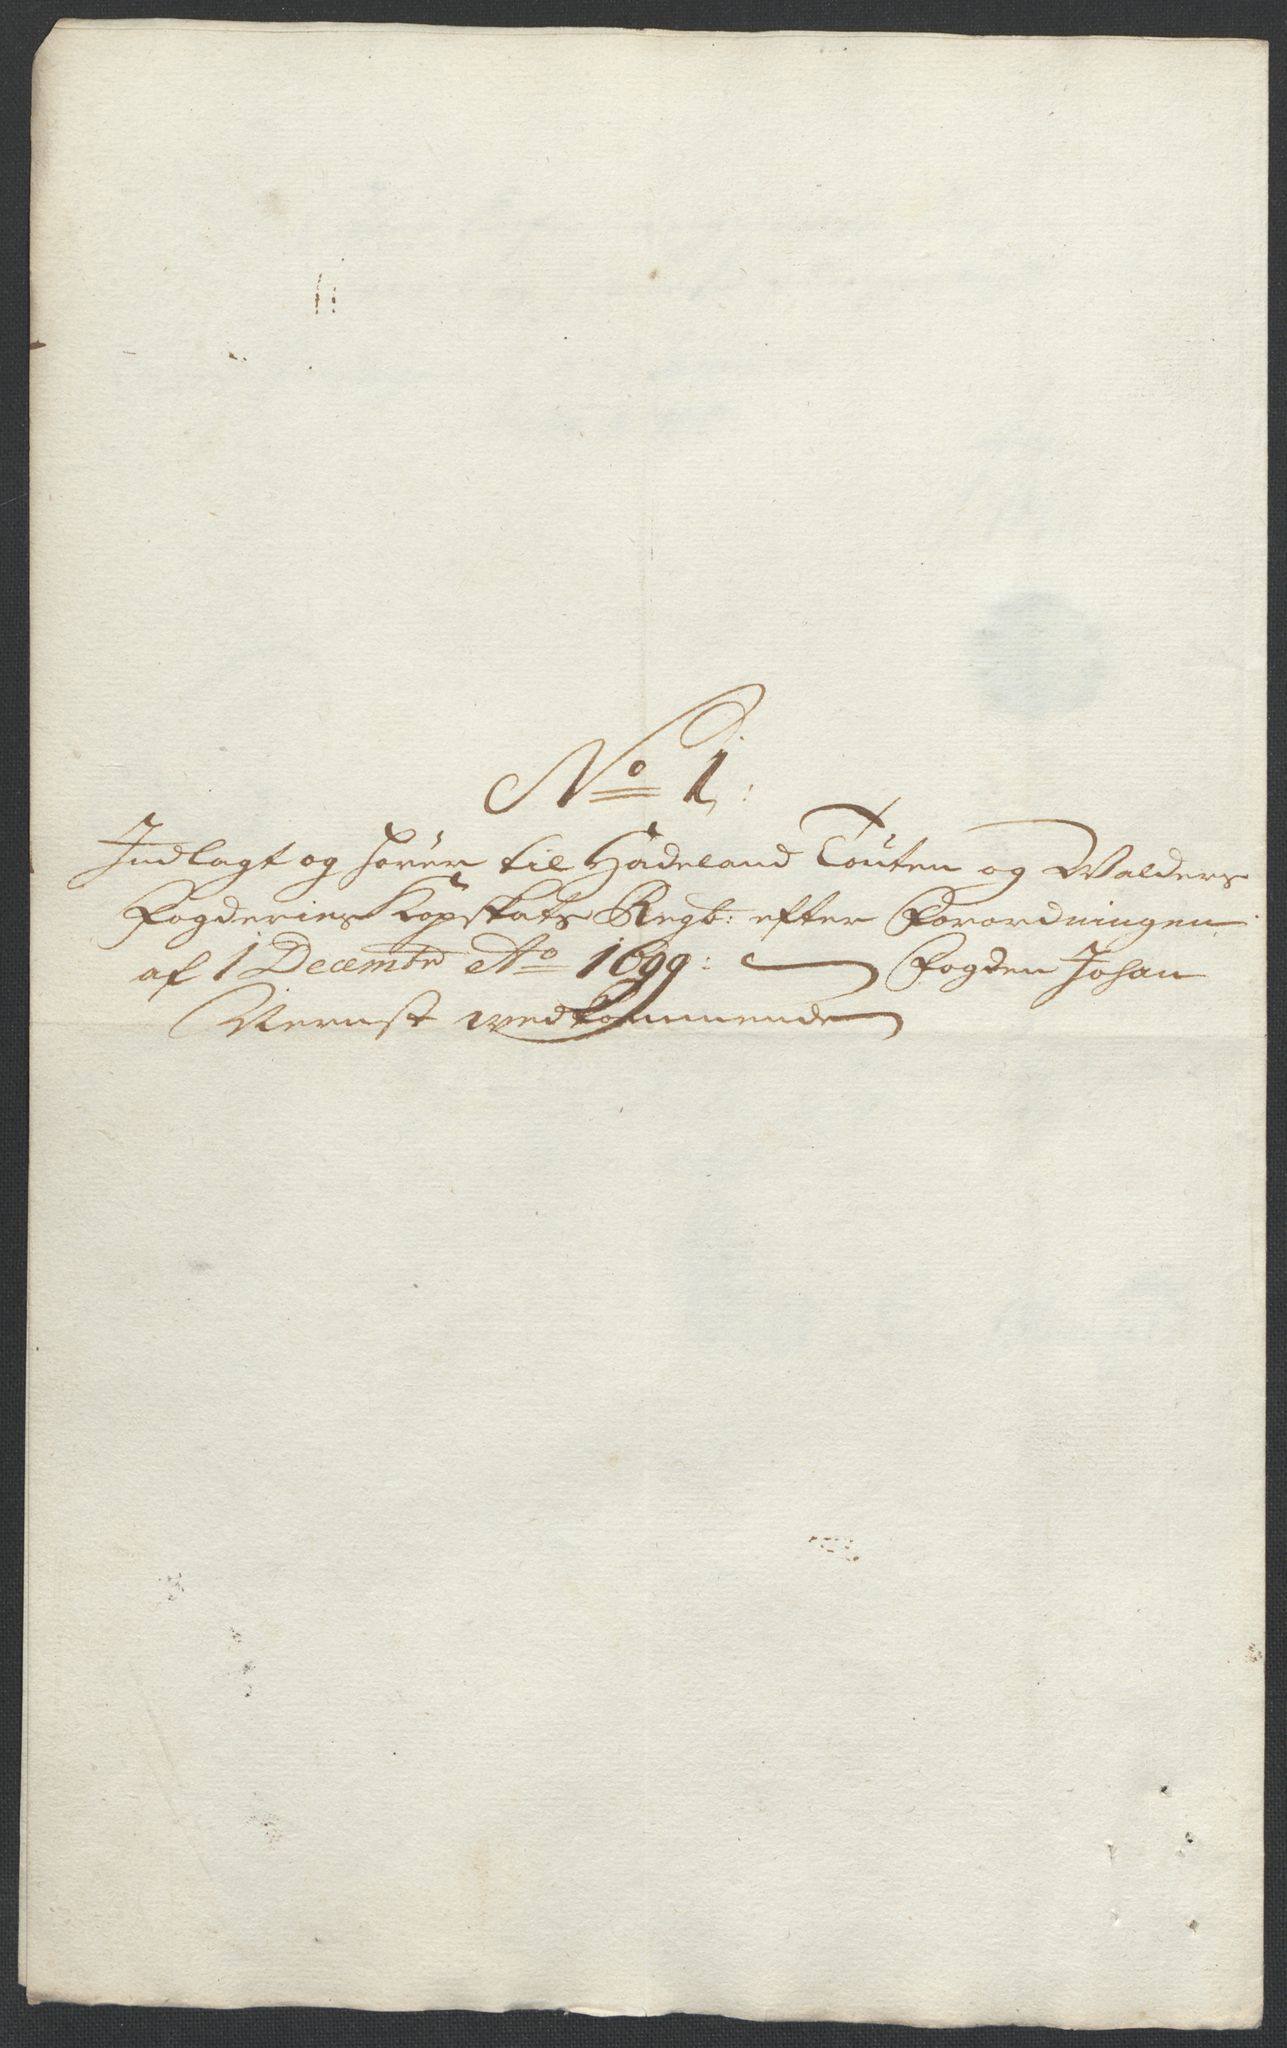 No 1:
Indlagt og hører til Hadeland Toten og Walders
Fogderies Kopskats Regb: efter Forordningen
af 1 Decembr Ao 1699: Fogden Johan
Wernst vedkommende